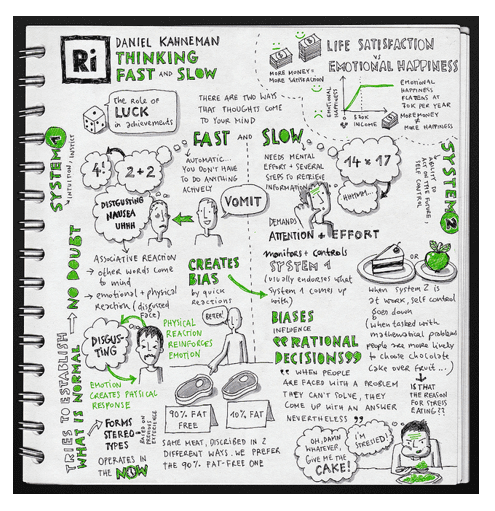 Ri
DANIEL KAHNEMAN
THINKING
FAST AND SLOW
The role of
LUCK
in achievements
THERE ARE TWO WAYS
THAT THOUGHTS COME
TO YOUR MIND
MORE MONEY =
MORE SATISFACTION
LIFE SATISFACTION
vs
EMOTIONAL HAPPINESS
EMOTIONAL
HAPPINESS
INCOME
EMOTIONAL
HAPPINESS
FLATTENS AT
70K PER YEAR
MORE MONEY ≠
MORE HAPPINESS
SYSTEM 1
INTUITION / INSTINCT
FAST AND SLOW
4!
2+2
AUTOMATIC...
YOU DON'T HAVE
TO DO ANYTHING
ACTIVELY
DISGUSTING
NAUSEA
UHHH
VOMIT
NEEDS MENTAL
EFFORT + SEVERAL
STEPS TO RETRIEVE
INFORMATION
14 × 17
HUMMM...
DEMANDS
ATTENTION + EFFORT
SYSTEM 2
ABILITY TO
ACT IN THE FUTURE,
SELF CONTROL
ASSOCIATIVE REACTION
→ other words come
to mind
→ emotional + physical
Reaction (disgusted
face)
CREATES
BIAS
by quick
reactions
monitors + controls
SYSTEM 1
(usually endorses what
System 1 comes up
with)
OR
when SYSTEM 2 IS
AT WORK, SELF CONTROL
GOES DOWN
(when tasked with
mathematical problems
people are more likely
to choose chocolate
cake over fruit...)
IS THAT
THE REASON
FOR STRESS
EATING??
TRIES TO ESTABLISH
WHAT IS NORMAL → NO DOUBT
DISGUS-
TING
PHYSICAL
REACTION
REINFORCES
EMOTION
EMOTION
CREATES PHYSICAL
RESPONSE
90% FAT
FREE
10% FAT
BIASES
INFLUENCE
"RATIONAL
DECISIONS"
"WHEN PEOPLE
ARE FACED WITH A PROBLEM
THEY CAN'T SOLVE, THEY
COME UP WITH AN ANSWER
NEVERTHELESS"
→ FORMS
STEREO-
TYPES
BASED ON
PREVIOUS
EXPERIENCE
OPERATES IN
THE NOW
SAME MEAT, DISCRIBED IN 2
DIFFERENT WAYS. WE PREFER
THE 90% FAT-FREE ONE
OH, DAMN
WHATEVER,
GIVE ME THE
CAKE!
I'M
STRESSED!